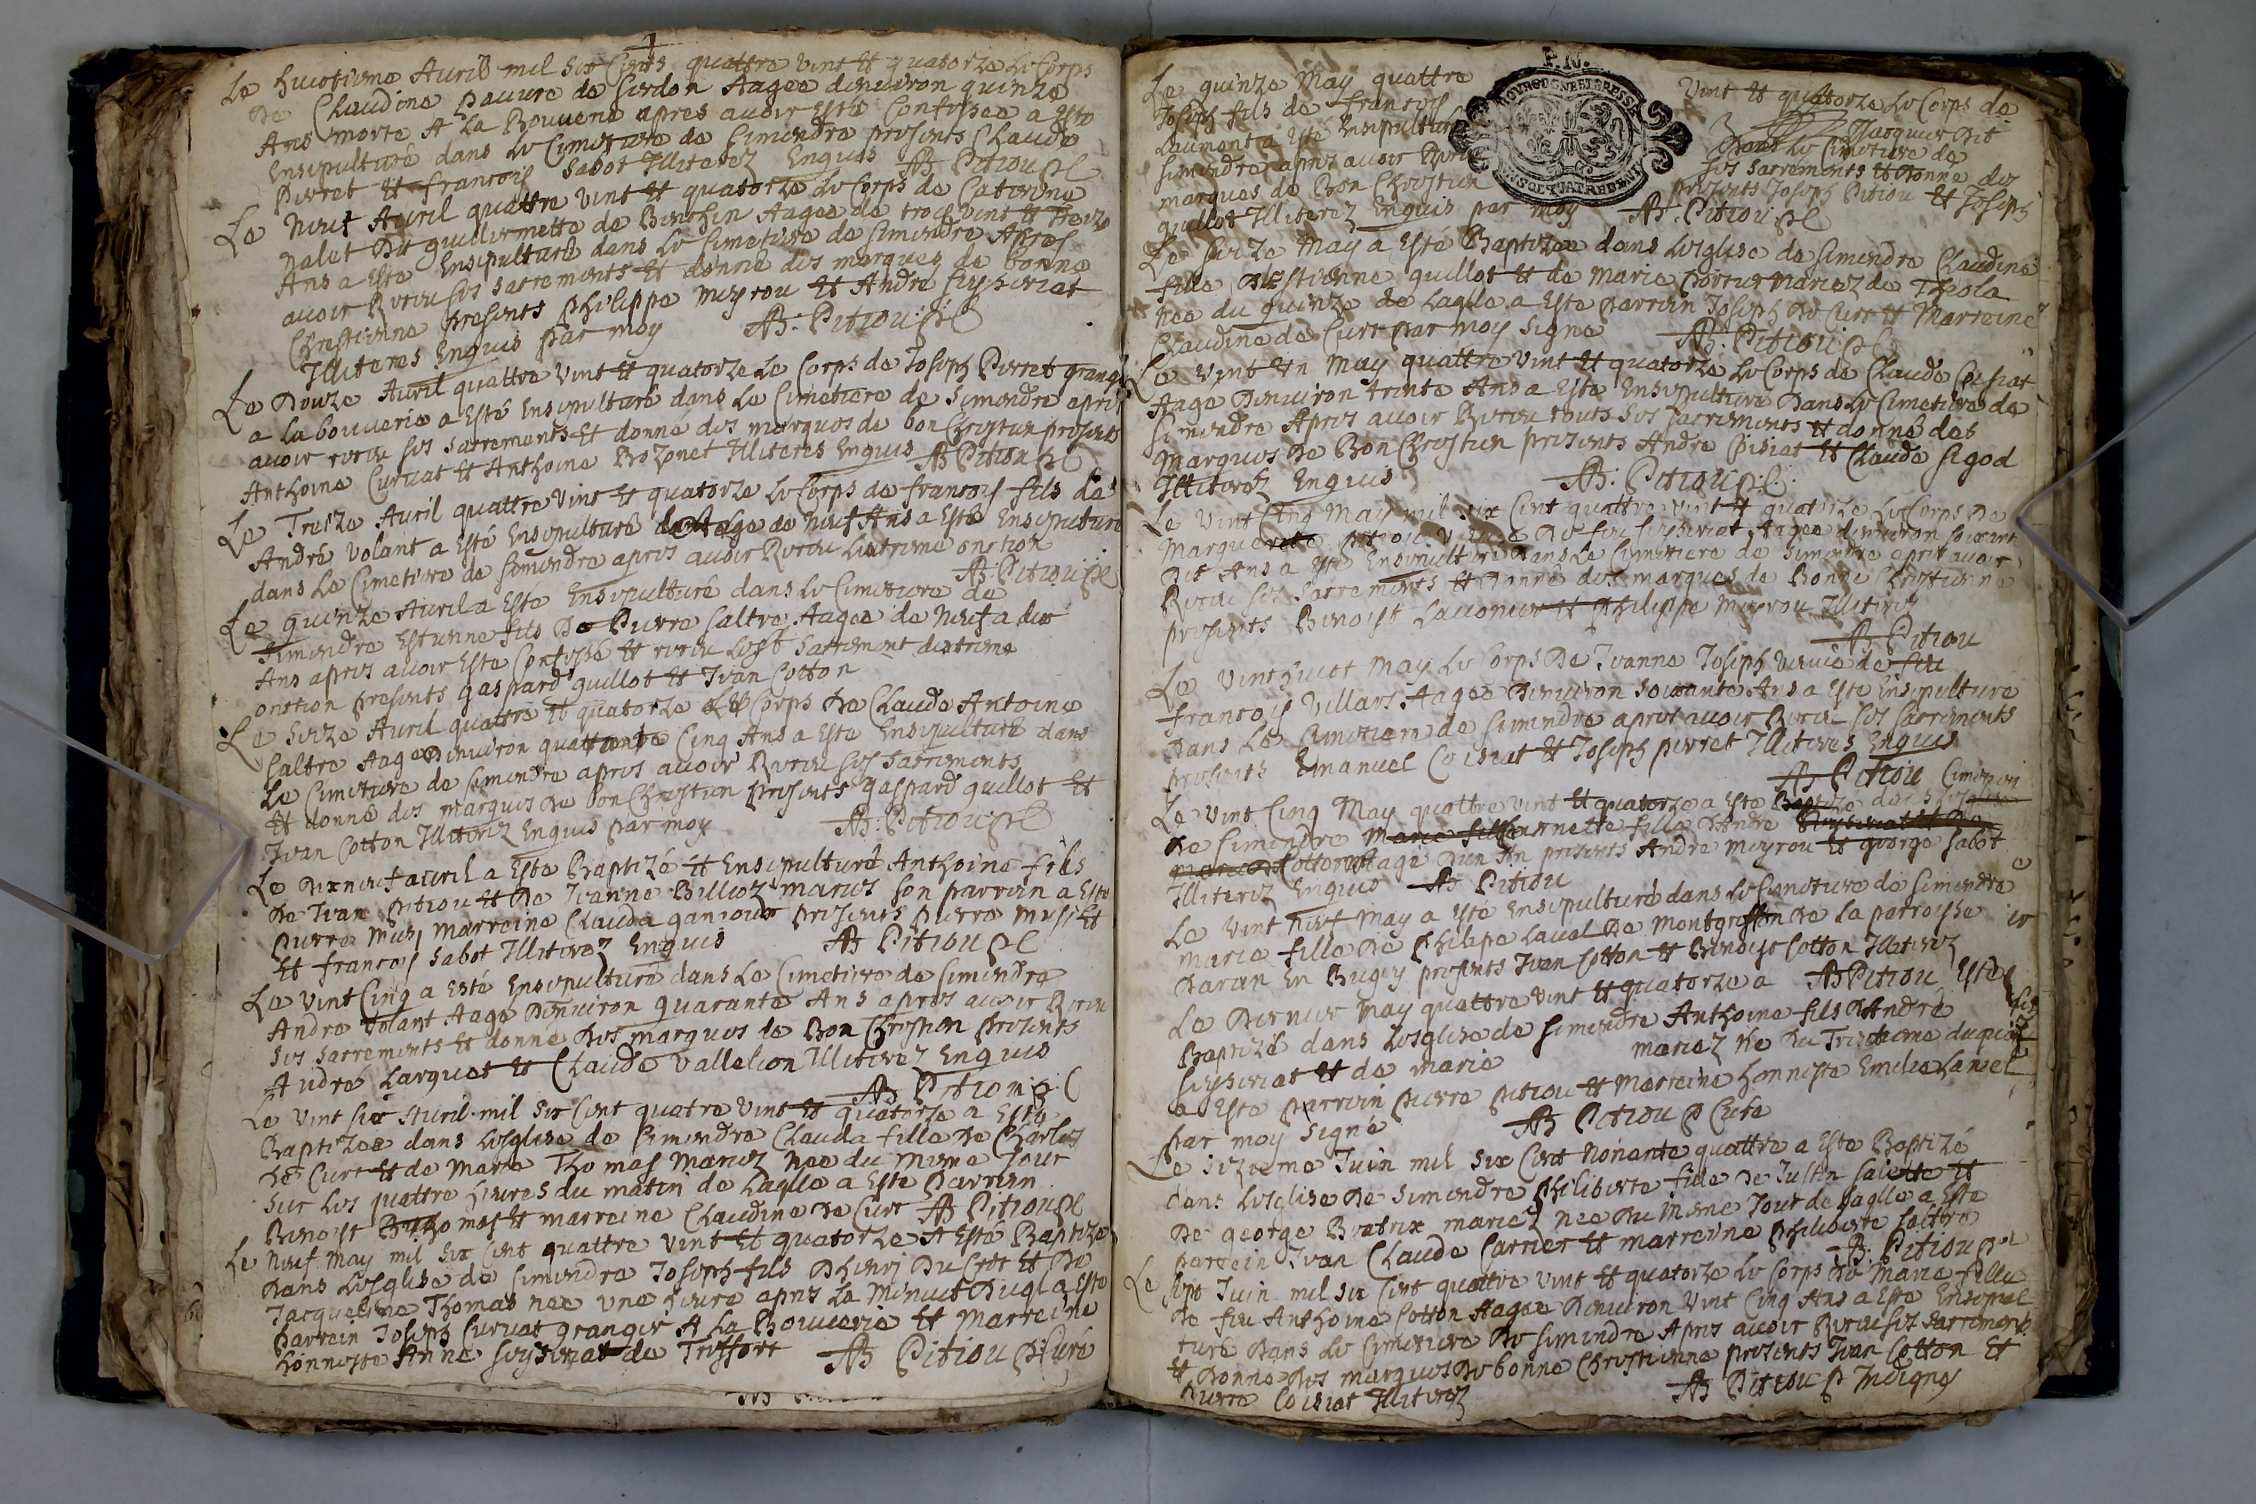 Le huictieme Auril mil six Cents quattre vint et quatorze le Corps
de Claudine pauure de Cerdon Aagee denuiron quinze
Ans morte A la Bouuene apres auoir Esté Confessee a esté
Ensepulturé dans le Cimetiere de Simendre presents Claude
Perret et francois Sabot Illiterez Enquis AB Pitiou
Le neuf Auril quattre vint et quatorze le Corps de Caterine
palet dit guilliermette de Bouchin Aagee de trois vint et treize
Ans a Este Ensepulturé dans le Cimetiere de Simendre Apres
auoir Receu ses sacrements et donné des marques de bonne
Chrestienne presents philippe meyrou et Andre seyseriat
Illiteres Enquis par moy AB: Pitiou
Le Douze Auril quattre vint et quatorze Le Corps de Joseph Perret grange
a la bouuerie a Esté Ensepulturé dans Le Cimetiere de Simendre apres
auoir receu ses sacrements et donné des marques de bon Chrestien presents
Anthoine Curuat et Anthoine Bozonet Illiteres Enquis AB Pitiou
Le Treize Auril quattre vint et quatorze le Corps de francois fils de
André volant a Esté Ensepulturé de Aage de neuf Ans a Esté Ensepulture
dans Le Cimetiere de Simendre apres auoir Receu Lextreme onction
AB Pitiou
Le quinze Auril a Este Ensepulturé dans le Cimetiere de
Simendre Estienne fils De Pierre Saltre Aagee de neuf a dix
Ans apres auoir Este Confessé et receu Lest Sacrement dextreme
onction presents gaspard guillot et Jean Cotton
Le seize Auril quattre et quatorze Le Corps de Claude Antoine
Saltre Aage Denuiron quattante Cinq Ans a Este Ensepulturé dans
Le Cimetiere de Simendre apres auoir Receu ses sacrements
et donné des marques de bon Chrestien presents gaspard guillot et
Jean Cotton Illiterez Enquis par moy AB: Pitiou
Le dixneuf auril a Este Baptizé et Ensepulturé Anthoine fils
de Jean pitiou et De Jeanne Billioz mariez son parrein a Esté
pierre marreine Clauda presents pierre et
et francois sabot Illiterez Enquis AB Pitiou
Le vint Cinq a Esté Ensepulturé dans Le Cimetiere de Simendre
Andre volant Aage Denuiron quarante Ans apres auoir Receu
ses sacrements et donné des marques de Bon Chrestien presents
André Larquet et Claude vallelion Illiterez Enquis
AB Pitiou
Le vint six Auril mil six Cent quatre vint et quatorze a Esté
Baptizee dans Lesglise de Simendre Clauda fille de Charles
de Curt et de Marie Thomas Mariez nee du mesme Jour
sur Les quattre heures du matin de Laqlle a Este parrein
Benoist Thomas et marreine Claudine de Curt AB Pitiou
Le neuf May mil six Cent quattre vint et quatorze A Esté Baptize
Dans Lesglise de Simendre Joseph fils Dhenri Du Crot et De
Jacqueline Thomas nee une heure apres La Minuit Duql a Este
Parrein Joseph Curuat granger A La Bouuerie et Marreine
honneste Anne Seyseriat de Treffort AB Pitiou Curé
Le quinze May quattre vint et quatorze Le Corps de
Joseph fils de francois Jacquier dit
Laumont a Esté Ensepulturé Dans Le Cimetiere de
Simendre apres auoir Receu ses sacrements et donné des
marques de Bon Chrestien presents Joseph Pitiou et Joseph
guillot Illiterez Enquis par moy AB: Pitiou
P.N.
BOVRGOGNE ET BRESSE
Le seize May a Esté Baptizee dans Lesglise de Simendre Claudine
fille DEstienne guillot et de Marie mariez de Theola
nee du quinze de Laqlle a Este parrein Joseph De Curt et Marreine
Claudine de Curt par moy signe AB: Pitiou
Le vint Un May quattre vint et quatorze Le Corps de Claude Coisiat
Aage Denuiron trente Ans a Este Ensepulture Dans Le Cimetiere de
Simendre Apres auoir Receu touts ses sacrements et donné des
marques de Bon Chrestien presents Andre Coisiat et Claude Sigod
Illiterez Enquis AB: Pitiou
Le vint Cinq May mil six Cent quattre vint et quatorze Le Corps De
Marguerite vefue de feu seyseriat Aagee denuiron soixante
dix Ans a esté Ensepulturé dans Le Cimetiere de Simendre apres auoir
Receu ses Sacrements et donné des marques de Bonne Chrestienne
presents Benoist Lauioneur et philippe Meyrou Illiterez
AB Pitiou
Le vinthuict May Le Corps De Jeanne Joseph vefuie de feu
francois Villars Aagee Denuiron soixante Ans a Este Ensepulture
Dans Le Cimetiere de Simendre apres auoir Receu ses sacrements
presents Emanuel Coisiat et Joseph perret Illiteres Enquis
AB Pitiou
Le vint Cinq May quattre vint et quatorze a Este
de Simendre Marie fille fille DAndre
Cotton Aage dun An presents Andre meyrou et george sabot
Illiterez Enquis AB Pitiou
Le vint neuf May a Esté Ensepulturé dans Le Cimetiere de Simendre
marie fille de Philipe Laual De Montgriffon De La parroisse
Daran En Bugey presents Jean Cotton et Benoist Cotton Illiterez
AB Pitiou
Le Dernier May quattre vint et quatorze a Esté
Baptizé dans Lesglise de Simendre Anthoine fils DAndré
seyseriat et de marie mariez né du Treizieme duquel
a Este parrein pierre pitiou et Marreine honneste Emilie Laniel
par moy signé AB Pitiou Curé
Le sizieme Juin mil six Cent nonante quattre a Este Baptizé
dans Lesglise De Simendre philiberte fille De Justin Caiette et
De george Beatrix mariez nee du mesme Jour de Laqlle a Este
parrein Jean Claude Carrier et marreine philiberte Saltre
AB: Pitiou
Le sept Juin mil six Cent quattre vint et quatorze Le Corps De Marie fille
De feu Anthoine Cotton Aagee Denuiron vint Cinq Ans a Este Ensepul-
turé Dans Le Cimetiere De Simendre Apres auoir Receu ses Sacrements
et Donné des marques de bonne Chrestienne presents Jean Cotton et
Pierre Coisiat Illiterez AB Pitiou Indigne